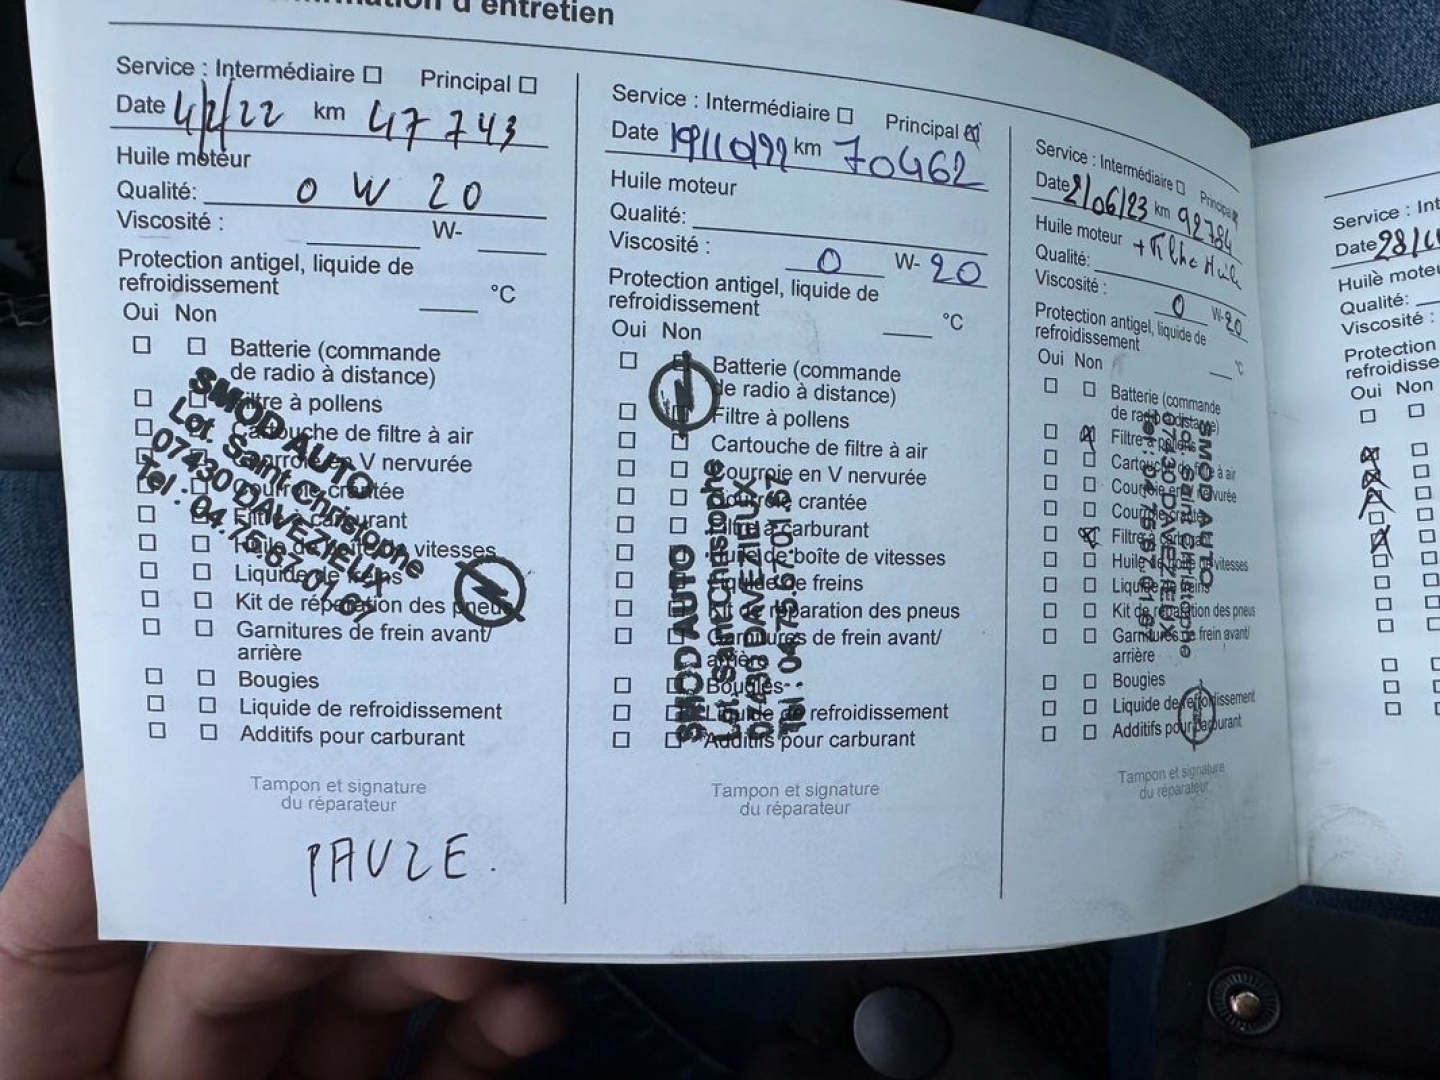 d'entretien
Service : Intermédiaire Principal
Date 4/2/22 km 47 743
Huile moteur
Qualité: 0 W 20
Viscosité : W-
Protection antigel, liquide de
refroidissement °C
Oui Non
Batterie (commande
de radio à distance)
Filtre à pollens
Cartouche de filtre à air
Courroie en V nervurée
Courroie crantée
Filtre à carburant
Huile de boîte de vitesses
Liquide de freins
Kit de réparation des pneus
Garnitures de frein avant/
arrière
Bougies
Liquide de refroidissement
Additifs pour carburant
SMOD AUTO
Lot. Saint Christophe
07430 DAVEZIEUX
Tel : 04.75.67.01.67
Tampon et signature
du réparateur
PAUZE.
Service : Intermédiaire Principal
Date 19/10/22 km 70462
Huile moteur
Qualité:
Viscosité : 0 W- 20
Protection antigel, liquide de
refroidissement °C
Oui Non
Batterie (commande
de radio à distance)
Filtre à pollens
Cartouche de filtre à air
Courroie en V nervurée
Courroie crantée
Filtre à carburant
Huile de boîte de vitesses
Liquide de freins
Kit de réparation des pneus
Garnitures de frein avant/
arrière
Bougies
Liquide de refroidissement
Additifs pour carburant
SMOD AUTO
Lot. Saint Christophe
07430 DAVEZIEUX
Tel : 04.75.67.01.67
Tampon et signature
du réparateur
Service : Intermédiaire Principal
Date 2/06/23 km 92784
Huile moteur + Filtre Huile
Qualité:
Viscosité : 0 W- 20
Protection antigel, liquide de
refroidissement °C
Oui Non
Batterie (commande
de radio à distance)
Filtre à pollens
Cartouche de filtre à air
Courroie en V nervurée
Courroie crantée
Filtre à carburant
Huile de boîte de vitesses
Liquide de freins
Kit de réparation des pneus
Garnitures de frein avant/
arrière
Bougies
Liquide de refroidissement
Additifs pour carburant
SMOD AUTO
Lot. Saint Christophe
07430 DAVEZIEUX
Tel : 04.75.67.01.67
Tampon et signature
du réparateur
Service : Int
Date 28/
Huile moteu
Qualité:
Viscosité :
Protection
refroidisse
Oui Non